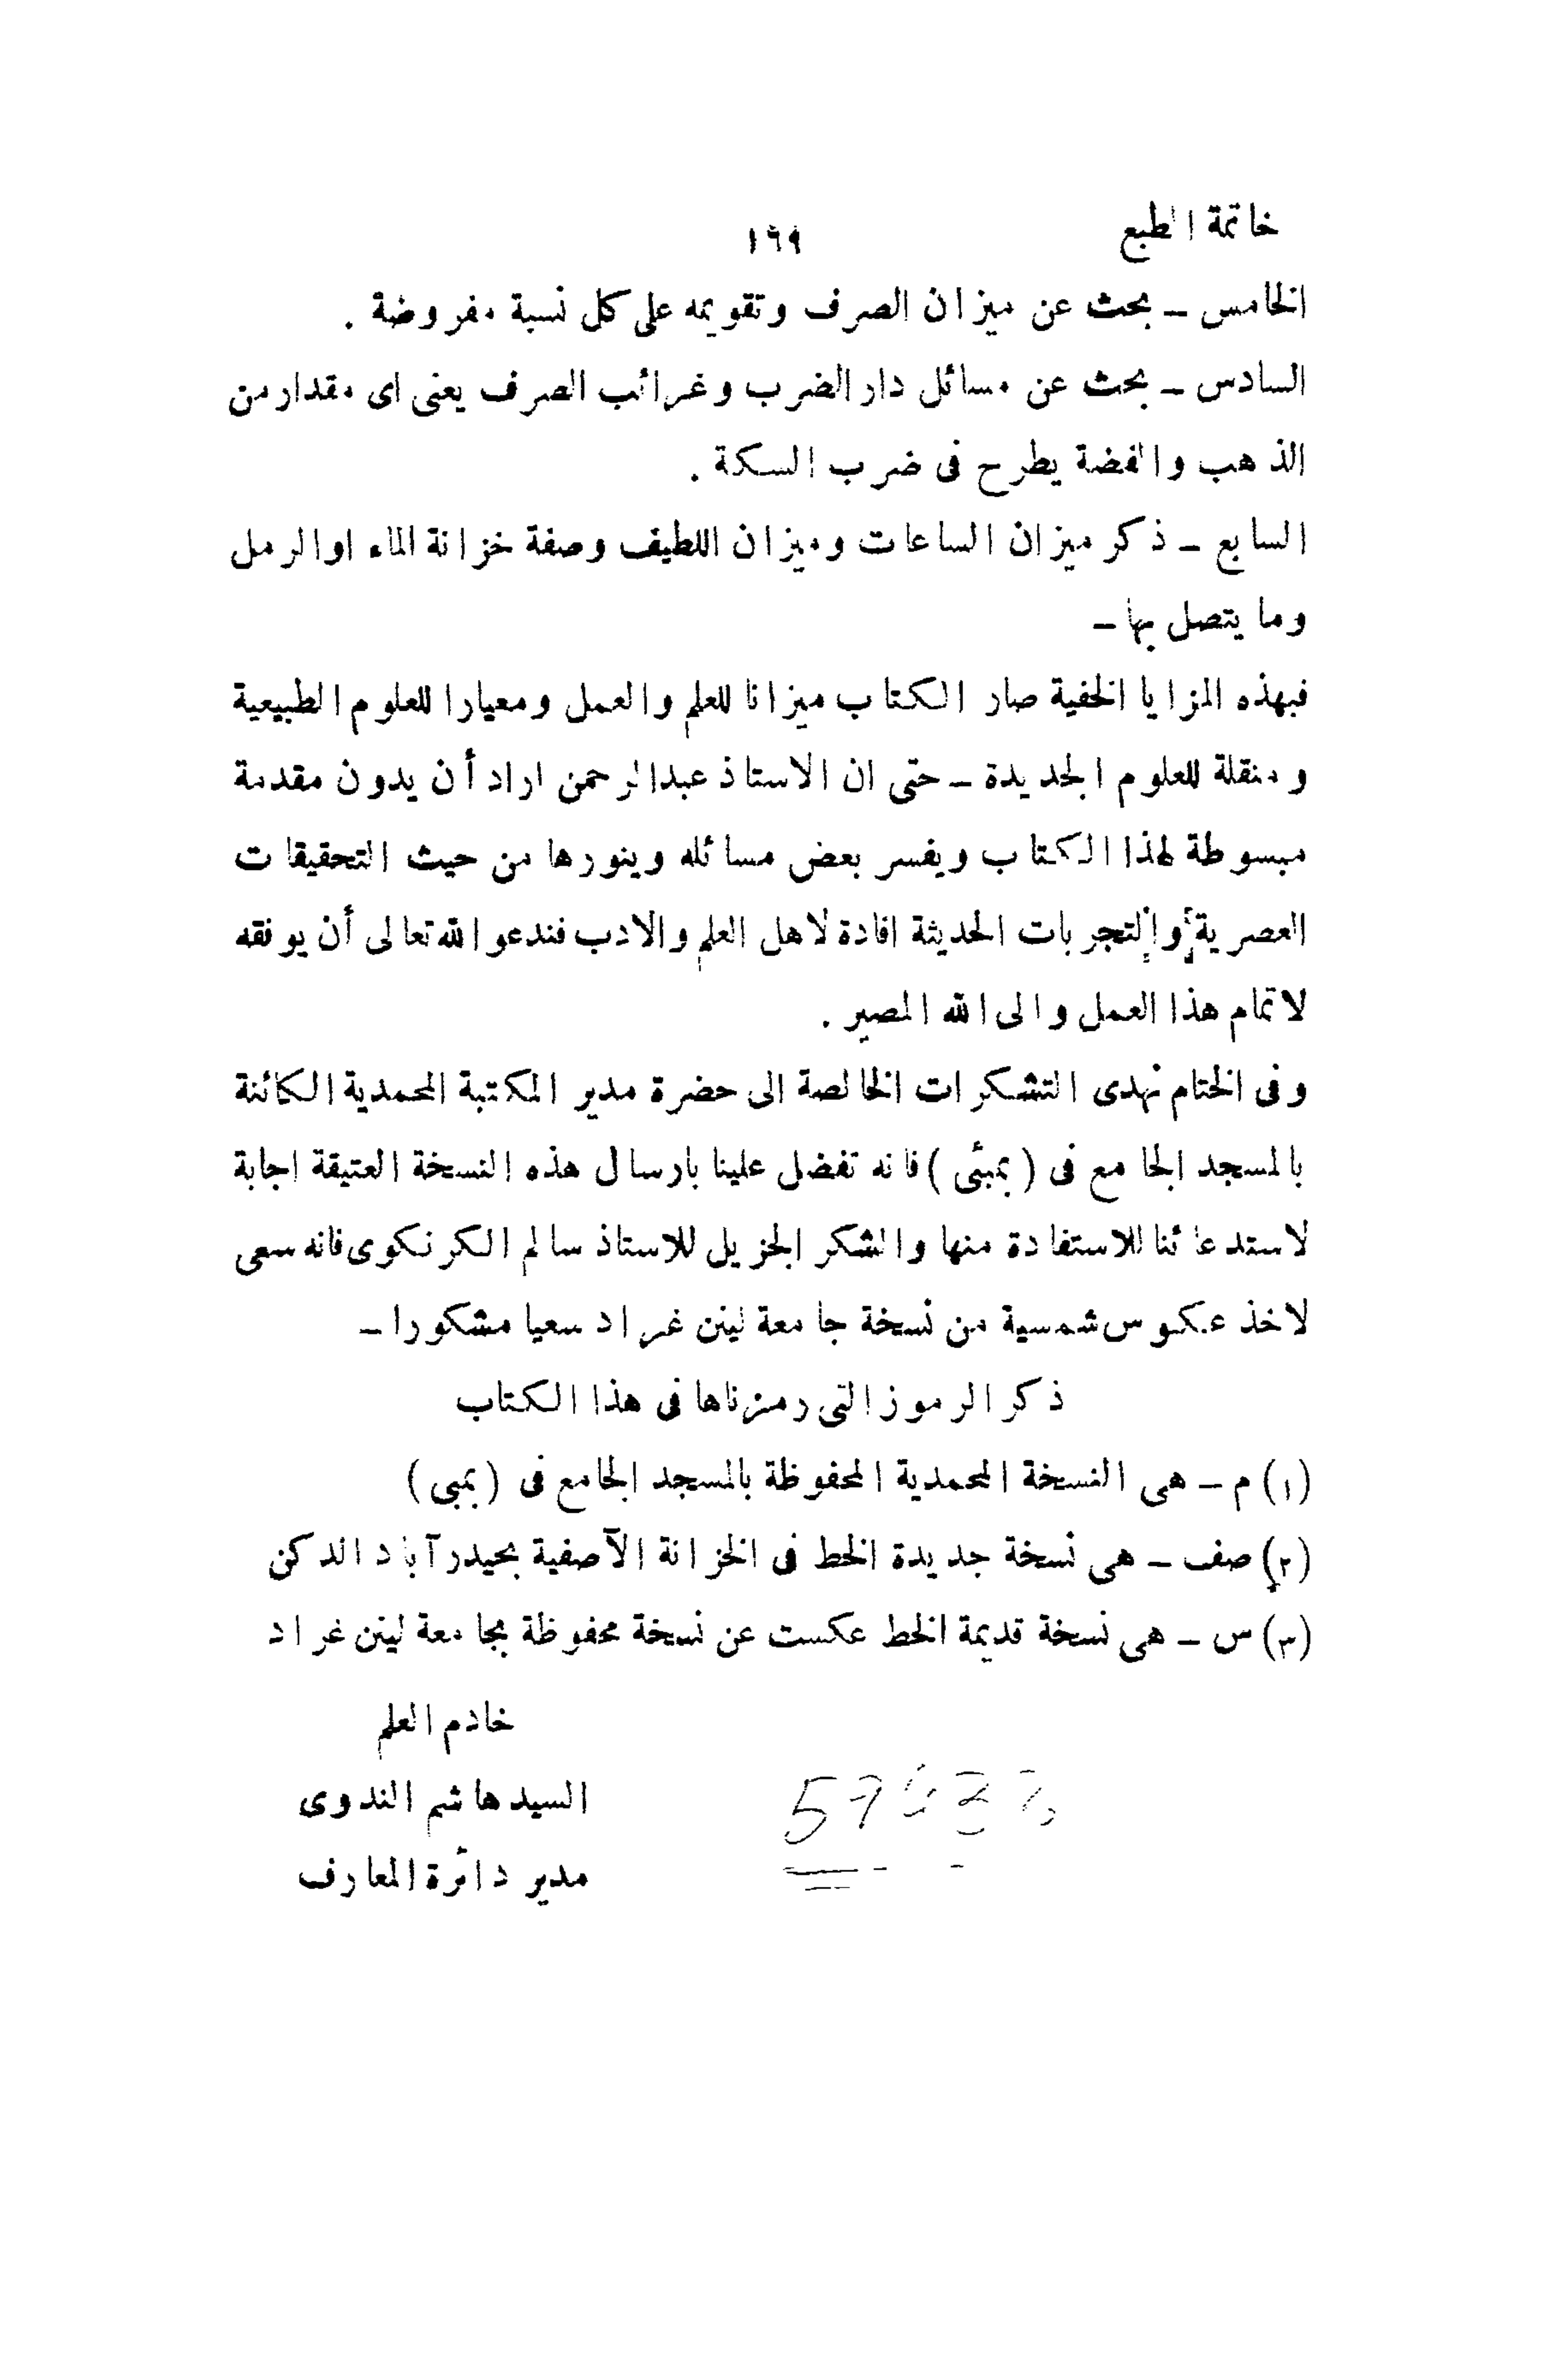 خاتمة الطبع
١٦٩
الخامس ـ بحث عن ميزان الصرف وتقويمه على كل نسبة مفروضة .
السادس ـ بحث عن مسائل دار الضرب وغرائب الصرف يعنى اى مقدار من
الذهب والفضة يطرح فى ضرب السكة .
السابع ـ ذكر ميزان الساعات وميزان اللطيف وصفة خزانة الماء اوالرمل
وما يتصل بها ـ
فبهذه المزايا الخفية صار الكتاب ميزانا للعلم والعمل ومعيارا للعلوم الطبيعية
ومنقلة للعلوم الجديدة ـ حتى ان الاستاذ عبدالرحمن اراد أن يدون مقدمة
مبسوطة لهذا الكتاب ويفسر بعض مسائله وينورها من حيث التحقيقات
العصرية والتجربات الحديثة افادة لاهل العلم والادب فندعو الله تعالى أن يوفقه
لاتمام هذا العمل والى الله المصير .
وفى الختام نهدى التشكرات الخالصة الى حضرة مدير المكتبة المحمدية الكائنة
بالمسجد الجامع فى ( بمبئى ) فانه تفضل علينا بارسال هذه النسخة العتيقة اجابة
لاستدعائنا للاستفادة منها والشكر الجزيل للاستاذ سالم الكرنكوى فانه سعى
لاخذ عكوس شمسية من نسخة جامعة لينن غراد سعيا مشكورا ـ
ذكر الرموز التى رمزناها فى هذا الكتاب
(١) م ـ هى النسخة المحمدية المحفوظة بالمسجد الجامع فى ( بمبى )
(٢) صف ـ هى نسخة جديدة الخط فى الخزانة الآصفية بحيدرآباد الدكن
(٣) س ـ هى نسخة قديمة الخط عكست عن نسخة محفوظة بجامعة لينن غراد
خادم العلم
السيد هاشم الندوى
مدير دائرة المعارف